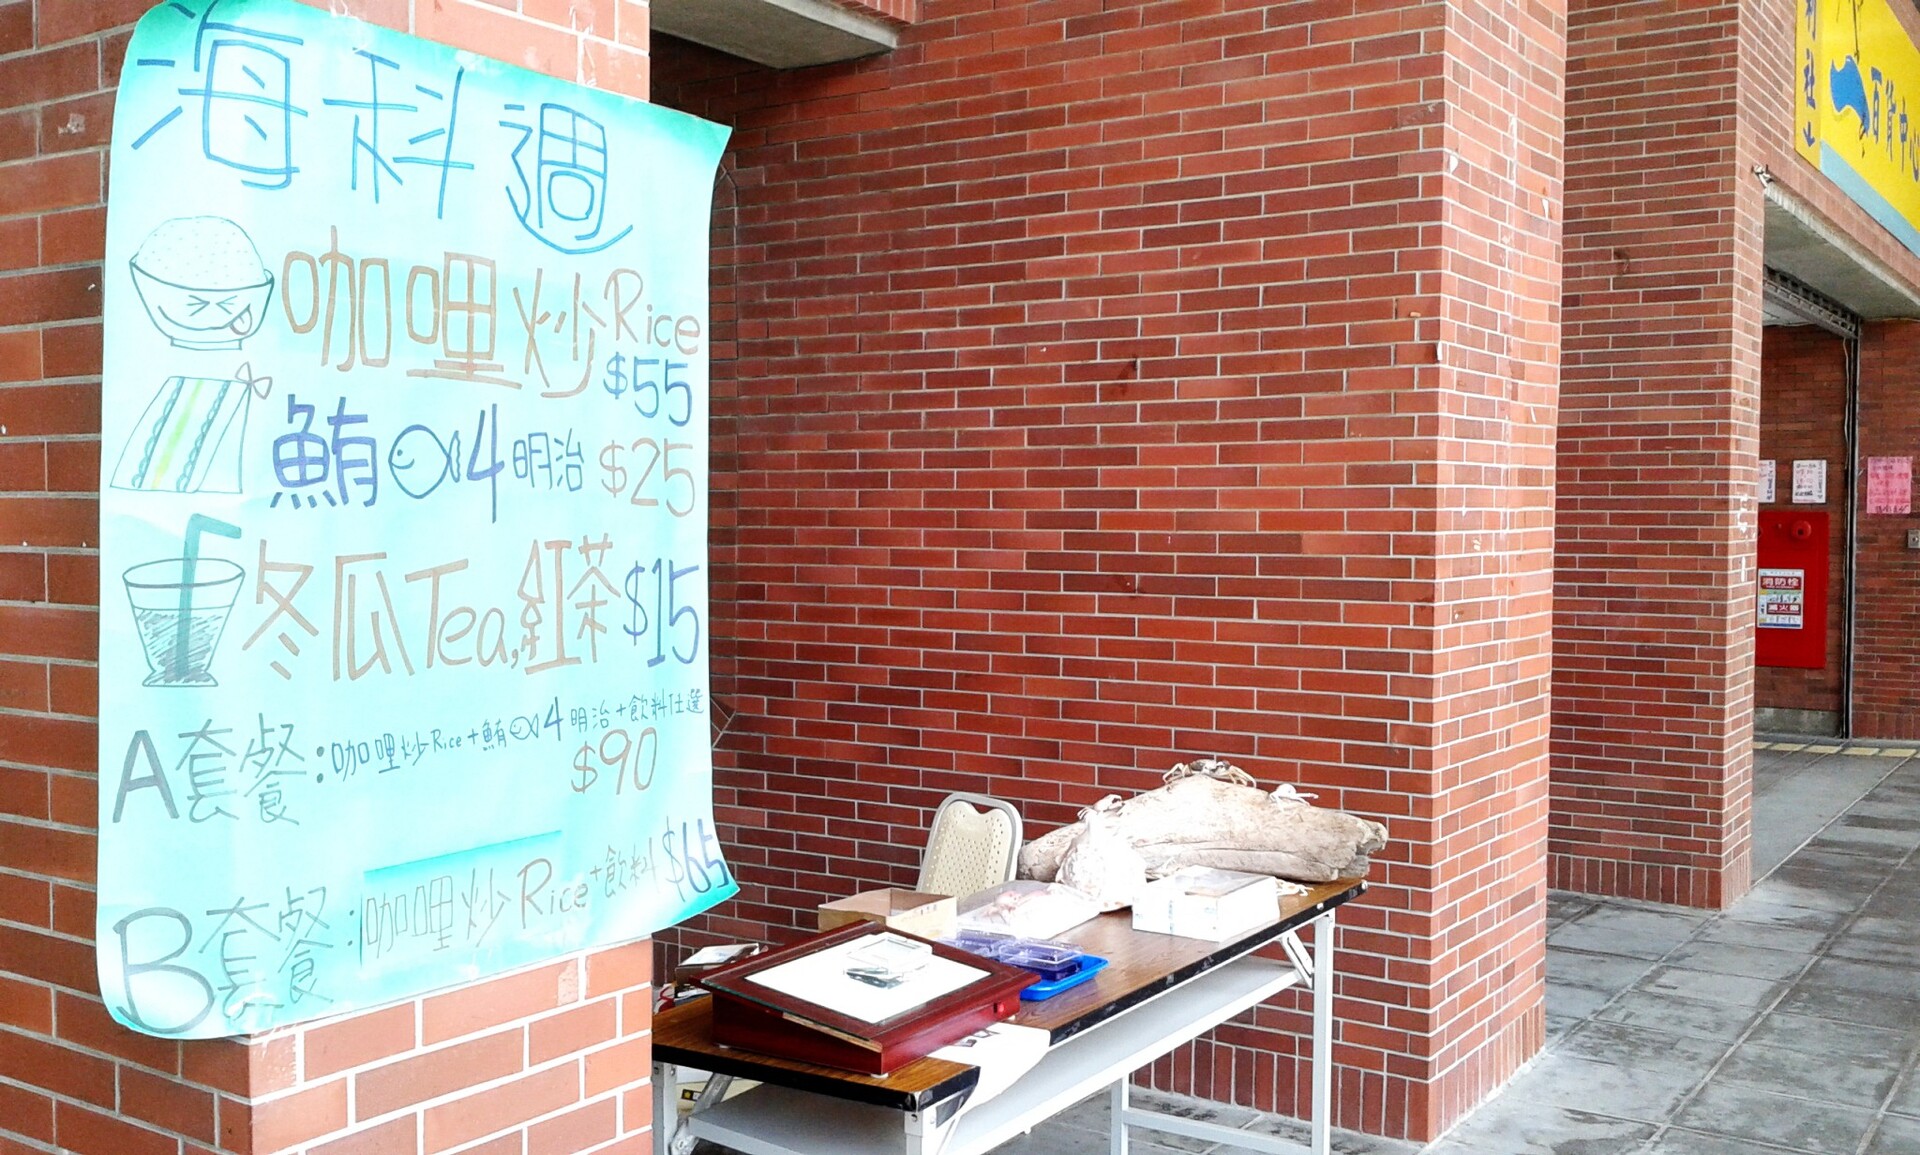 海科週
咖哩炒Rice
$55
鮪 4明治 $25
冬瓜Tea,紅茶 $15
A套餐:咖哩炒Rice+鮪 4明治+飲料任選
$90
B套餐:咖哩炒Rice+飲料 $65
利社
百貨中心
消防栓
滅火器